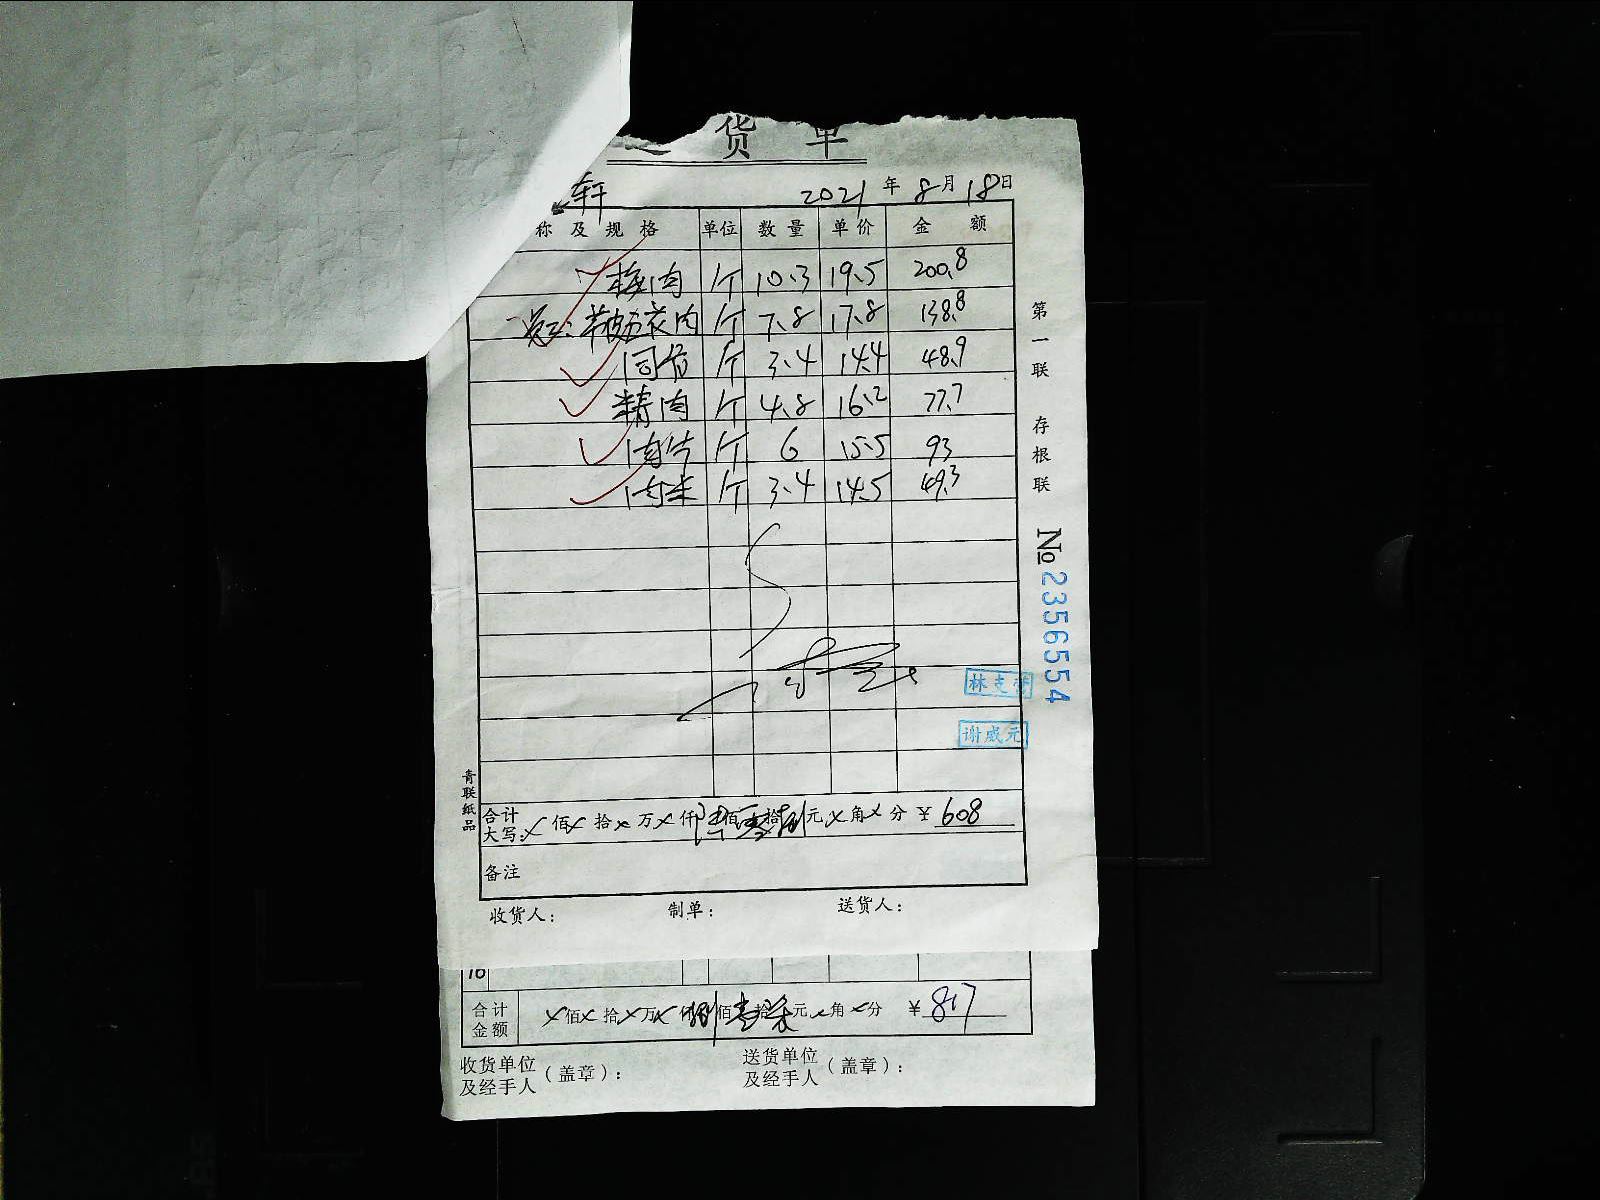 货 单
轩 2021年8月18日
称及规格 单位 数量 单价 金额
梅肉 斤 10.3 19.5 200.8
带皮五花肉 斤 7.8 17.8 138.8
同骨 斤 3.4 14.4 48.9
精肉 斤 4.8 16.2 77.7
肉片 斤 6 15.5 93
肉米 斤 3.4 14.5 49.3
第一联 存根联
No 2356554
林支
谢威元
青联纸品
合计大写:×佰×拾×万×仟陆佰零拾捌元×角×分 ¥608
备注
收货人: 制单: 送货人:
16
合计金额 ×佰×拾×万×仟捌佰壹拾柒元×角×分 ¥817
收货单位及经手人(盖章): 送货单位及经手人(盖章):